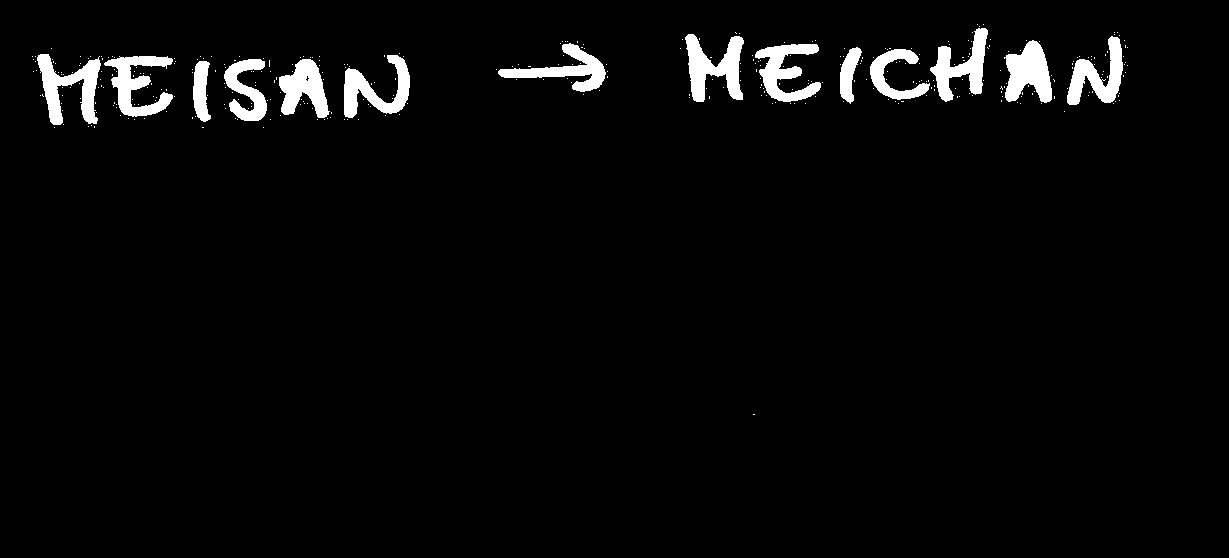 MEISAN → MEICHAN